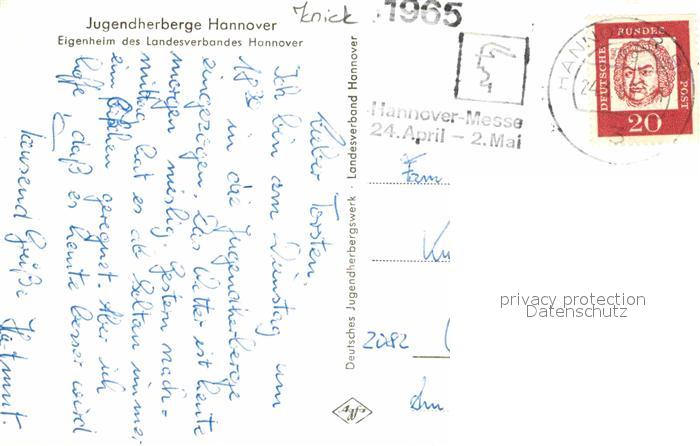 Jugendherberge Hannover
Eigenheim des Landesverbandes Hannover
Knick
1965
Hannover-Messe
24. April – 2. Mai
DEUTSCHE BUNDESPOST
20
HANN
Lieber Torsten,
Ich bin am Dienstag um
18.30 in die Jugendherberge
eingezogen. Das Wetter ist heute
morgen mieslig. Gestern nach-
mittag hat es ab immer
ein geregnet. Aber ich
hoffe, daß es heute besser wird
Tausend Grüße Hartmut.
Deutsches Jugendherbergswerk · Landesverband Hannover
Fam
Ku
2082
Am
Agfa
privacy protection
Datenschutz